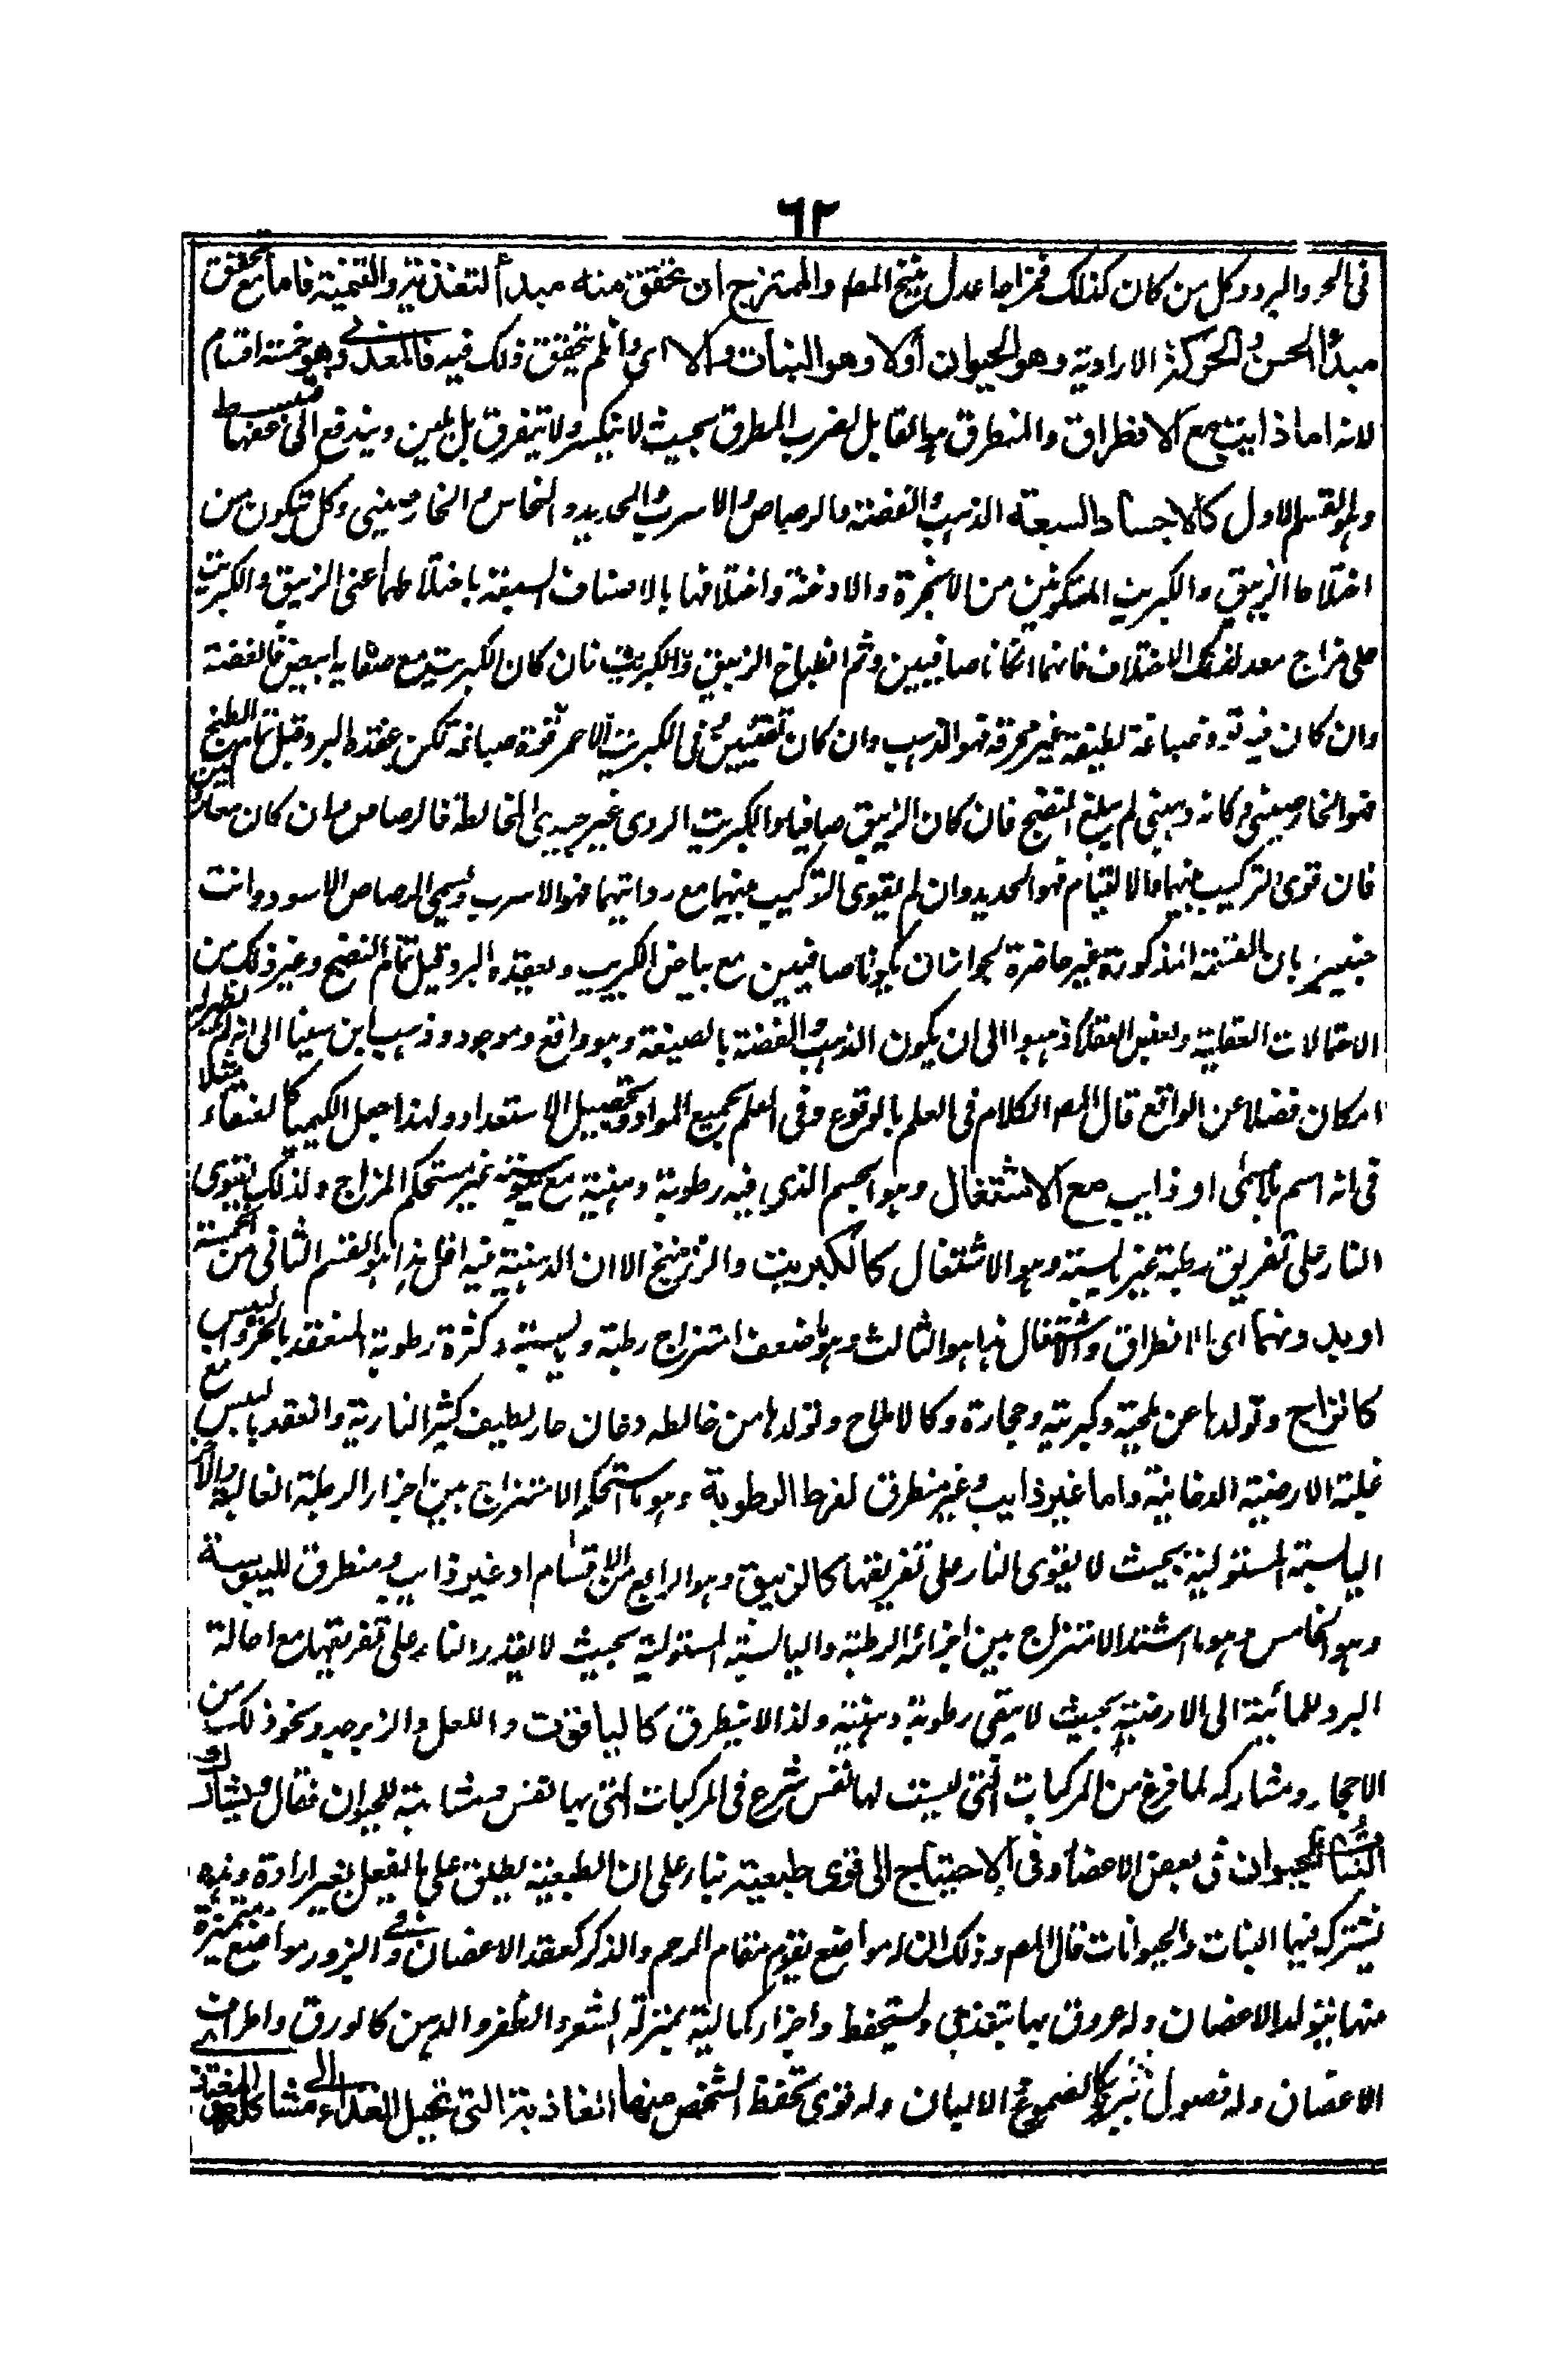 ٦٢
فى الحر والبرد وكل من كان كذلك فمزاجا عدل شيخ المص والممتزج ان تحقق منه مبدأ التغذية والتنمية فاما مع تحقق
مبدأ الحس والحركة الارادية وهو الحيوان أولا وهو النبات والا اى وان لم يتحقق ذلك فيه فالمعدنى وهو خمسة اقسام
لانه اما ذايب مع الانطراق والمنطرق هو القابل لضرب المطرق بحيث لا ينكسر ولا يتفرق بل يلين ويندفع الى عمقها فينبسط
وهو القسم الاول كالاجساد السبعة الذهب والفضة والرصاص والاسرب والحديد والنحاس والخارصينى وكل تتكون من
اختلاط الزيبق والكبريت المتكونين من الابخرة والادخنة واختلافها بالاصناف السبعة باختلاطهما اعنى الزيبق والكبريت
على مزاج معد لذلك الاختلاف فانهما ان كانا صافيين وتم انطباخ الزيبق والكبريت فان كان الكبريت مع صفايه ابيض فالفضة
وان كان فيه قوة صباغة لطيفة غير محرقة فهو الذهب وان كان نقيين وفى الكبريت الاحمر قوة صباغة لكن عقده البرد قبل تمام الطبخ
فهو الخارصينى وكانه ذهب نى لم يبلغ النضج فان كان الزيبق صافيا والكبريت الردى غير جيدى المخالطة فالرصاص وان كان معا رديين
فان قوى التركيب بينهما فالالتيام فهو الحديد وان لم يقوى التركيب بينهما مع رداتيهما فهو الاسرب ويسمى الرصاص الاسود وانت
خبير بان القسمة المذكورة غير حاضرة لجواز ان يكونا صافيين مع بياض الكبريت وبعقده البرد قبل تمام النضج وغير ذلك من
الاحتمالات العقلية وبعض العقلا ذهبوا الى ان يكون الذهب والفضة بالصيغة وهو واقع وموجود وذهب ابن سينا الى انه لم يظهر له
امكان فضلا عن الواقع قال المص الكلام فى العلم بالوقوع وفى العلم بجميع المواد وتحصيل الاستعداد ولهذا جعل الكيميا كالعنقاء مثلا
فى انه اسم بلا مسمى او ذايب مع الاشتعال وهو الجسم الذى فيه رطوبة دهنية مع يبوسة غير مستحكم المزاج ولذلك يقوى
النار على تفريق رطبة عن يابسة وهو الاشتعال كالكبريت والزرنيخ الا ان الدهنية فيه اقل هذا هو القسم الثانى من الخمسة
او بدونهما اى الانطراق والاشتعال هذا هو الثالث وهو ما ضعف امتزاج رطبة ويابسة وكثرة رطوبة المنعقد بالحر واليبس
كالزاج وتولدها عن ملحية وكبريتية وحجارة وكالاملاح وتولدها من خالطه دخان حار لطيف كثير النارية وانعقد باليبس مع
غلبة الارضية الدخانية واما غير ذايب وغير منطرق لفرط الرطوبة وهو ما استحكم الامتزاج بين اجزاء الرطبة الغالبة والاجزاء
اليابسة المستولية بحيث لا يقوى النار على تفريقها كالزيبق وهو الرابع من الاقسام او غير ذايب ومنطرق لليبوسة
وهو الخامس وهو ما اشتد الامتزاج بين اجزائه الرطبة واليابسة المستولية بحيث لا يقدر النار على تفريقهما مع احالة
البرد للمائية الى الارضية بحيث لا يبقى رطوبة دهنية ولذا لا ينطرق كالياقوت واللعل والزبرجد ونحو ذلك من
الاحجار ومشاركه لما فرغ من المركبات التى ليست لها نفس شرع فى المركبات التى بها نفس مشابهة للحيوان فقال ويشارك
النبات للحيوان فى بعض الاعضاء وفى الاحتياج الى قوى طبعية بناء على ان الطبعية يطلق على ما يفعل بغير ارادة وهذه
يشترك فيها النبات والحيوانات قال المص وذلك ان له مواضع يقوم مقام الرحم والذكر كعقد الاعضان وفى البزور مواضع متميزة
منها يتولد الاعضان وله عروق بها يتغذى ويستحفظ واجزاء كمالية بمنزلة الشعر والظفر والدهن كالورق واطراف
الاعضان وله فصول تبرز كالصموغ والالبان وله قوى تحفظ الشخص منها الغاذية التى تحيل الغذاء الى مشاكلة المغتذى